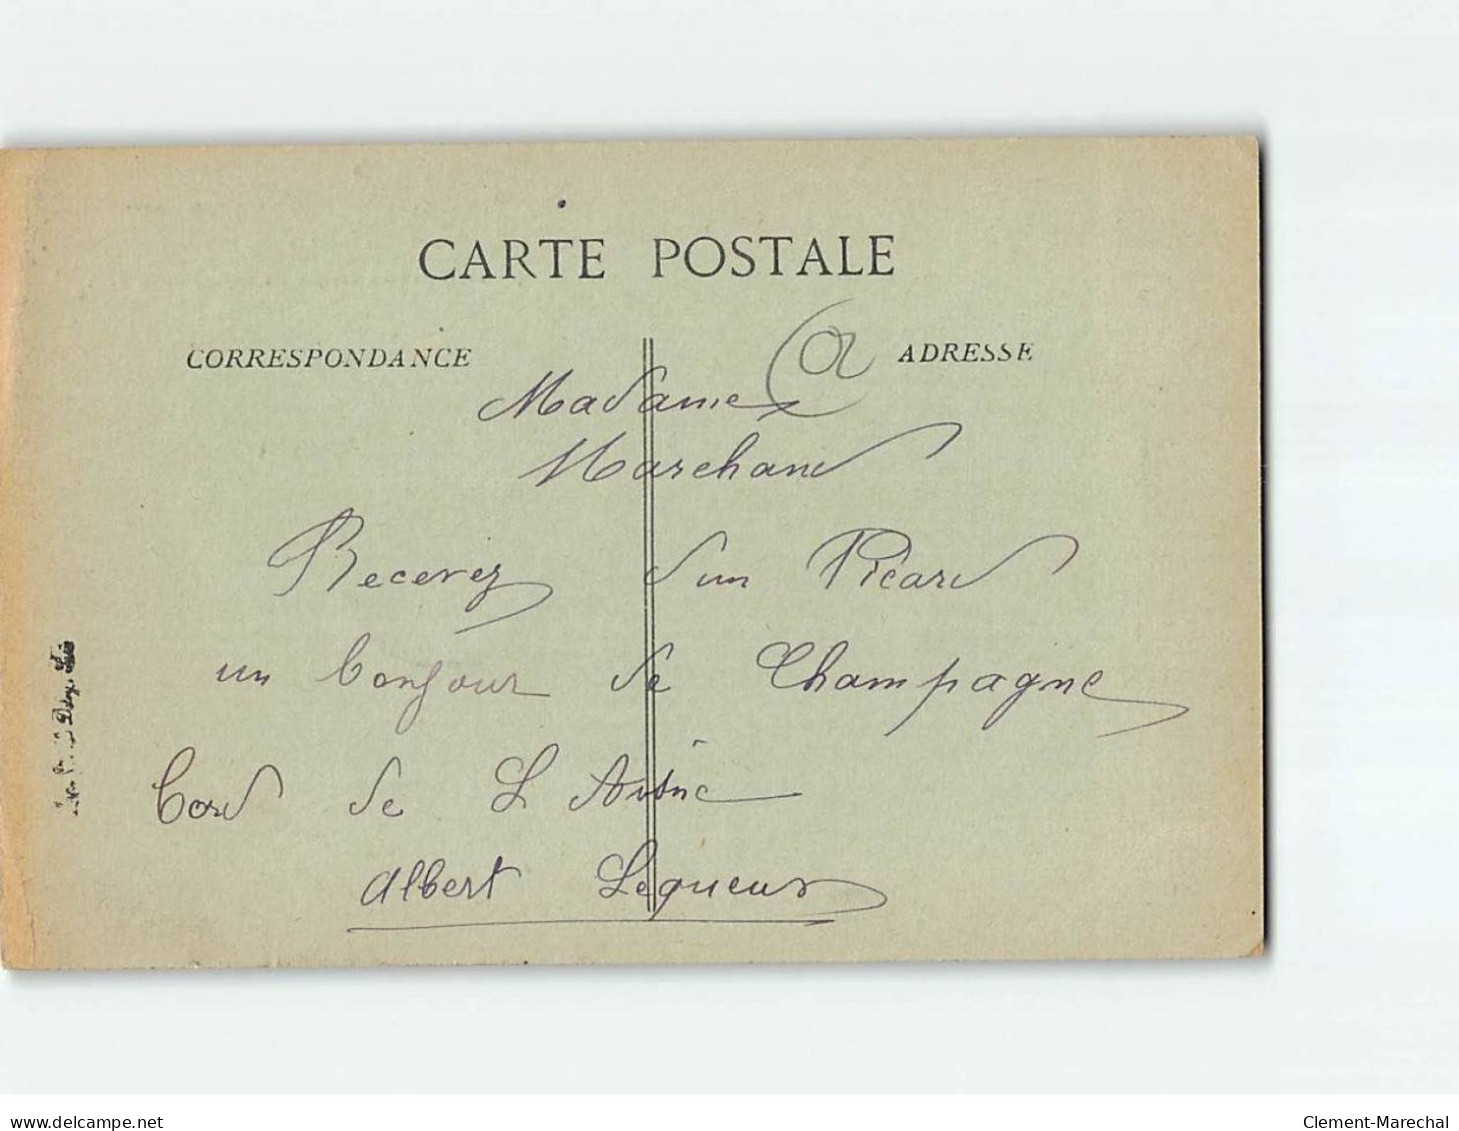 CARTE POSTALE
CORRESPONDANCE
ADRESSE
Madame
Marchand
Recevez d'un Picard
un bonjour de Champagne
bord de L Aisne
Albert Lequeux
delcampe.net
Clement-Marechal